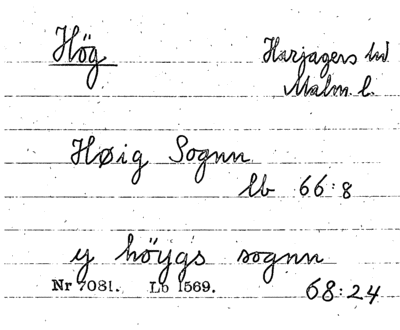 Hög
Harjagers hd
Malm. l.
Høig Sognn
lb 66:8
y höygs sognn
Nr 7081. Lb 1569. 68:24